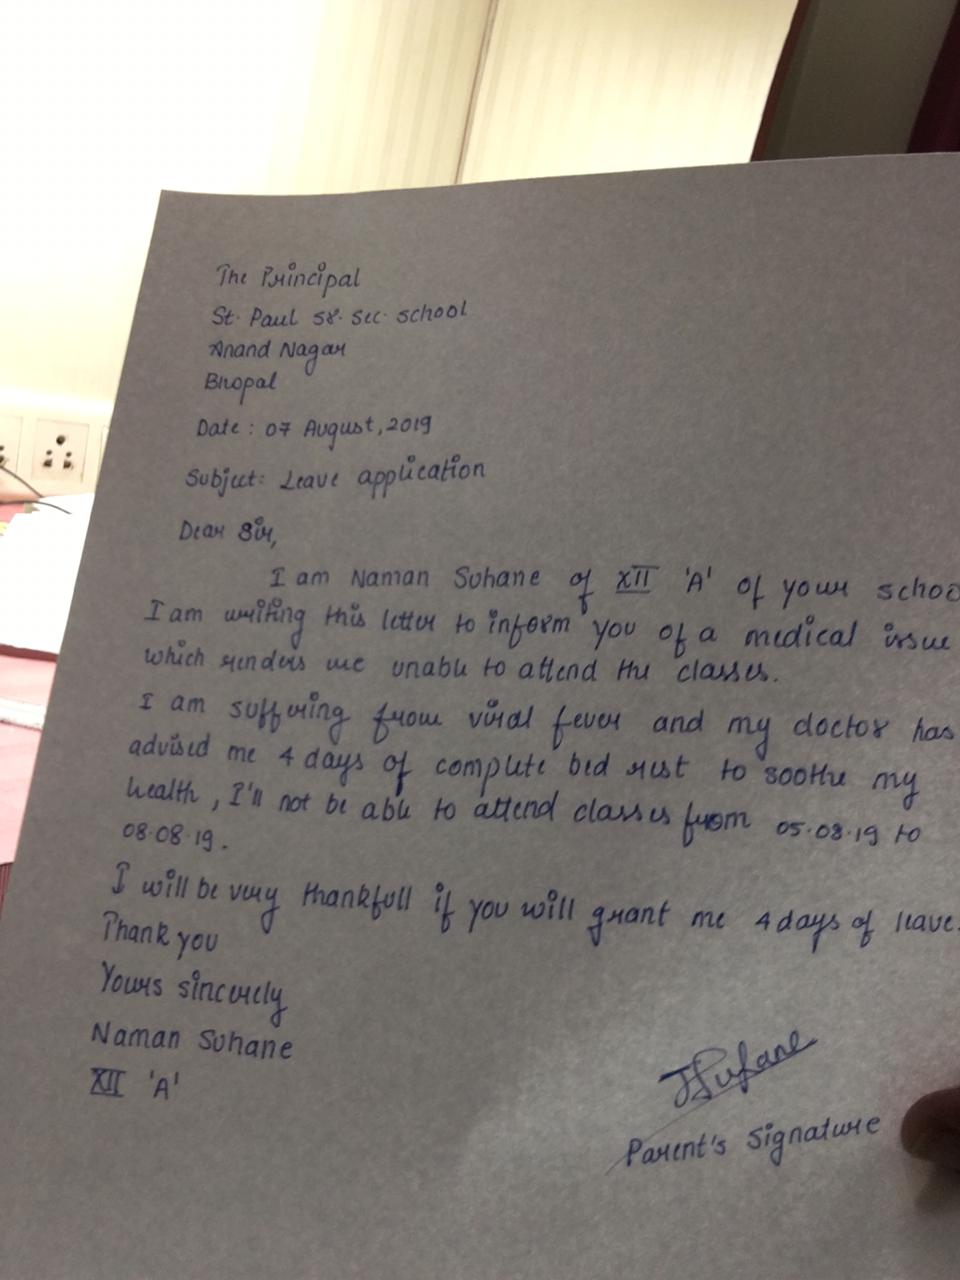 The Principal
St. Paul Sr. Sec. School
Anand Nagar
Bhopal
Date : 07 August, 2019
Subject: Leave application
Dear Sir,
I am Naman Suhane of XII 'A' of your schoo
I am writing this letter to inform you of a medical issue
which renders me unable to attend the classes.
I am suffering from viral fever and my doctor has
advised me 4 days of complete bed rest to soothe my
health, I'll not be able to attend classes from 05.08.19 to
08.08.19.
I will be very thankfull if you will grant me 4 days of leave.
Thank you
Yours sincerely
Naman Suhane
XII 'A'
Parent's Signature